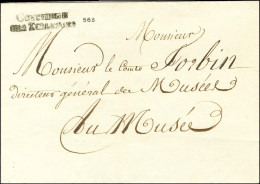 563
Monsieur
Monsieur le Comte Forbin
directeur général des Musées
Au Musée